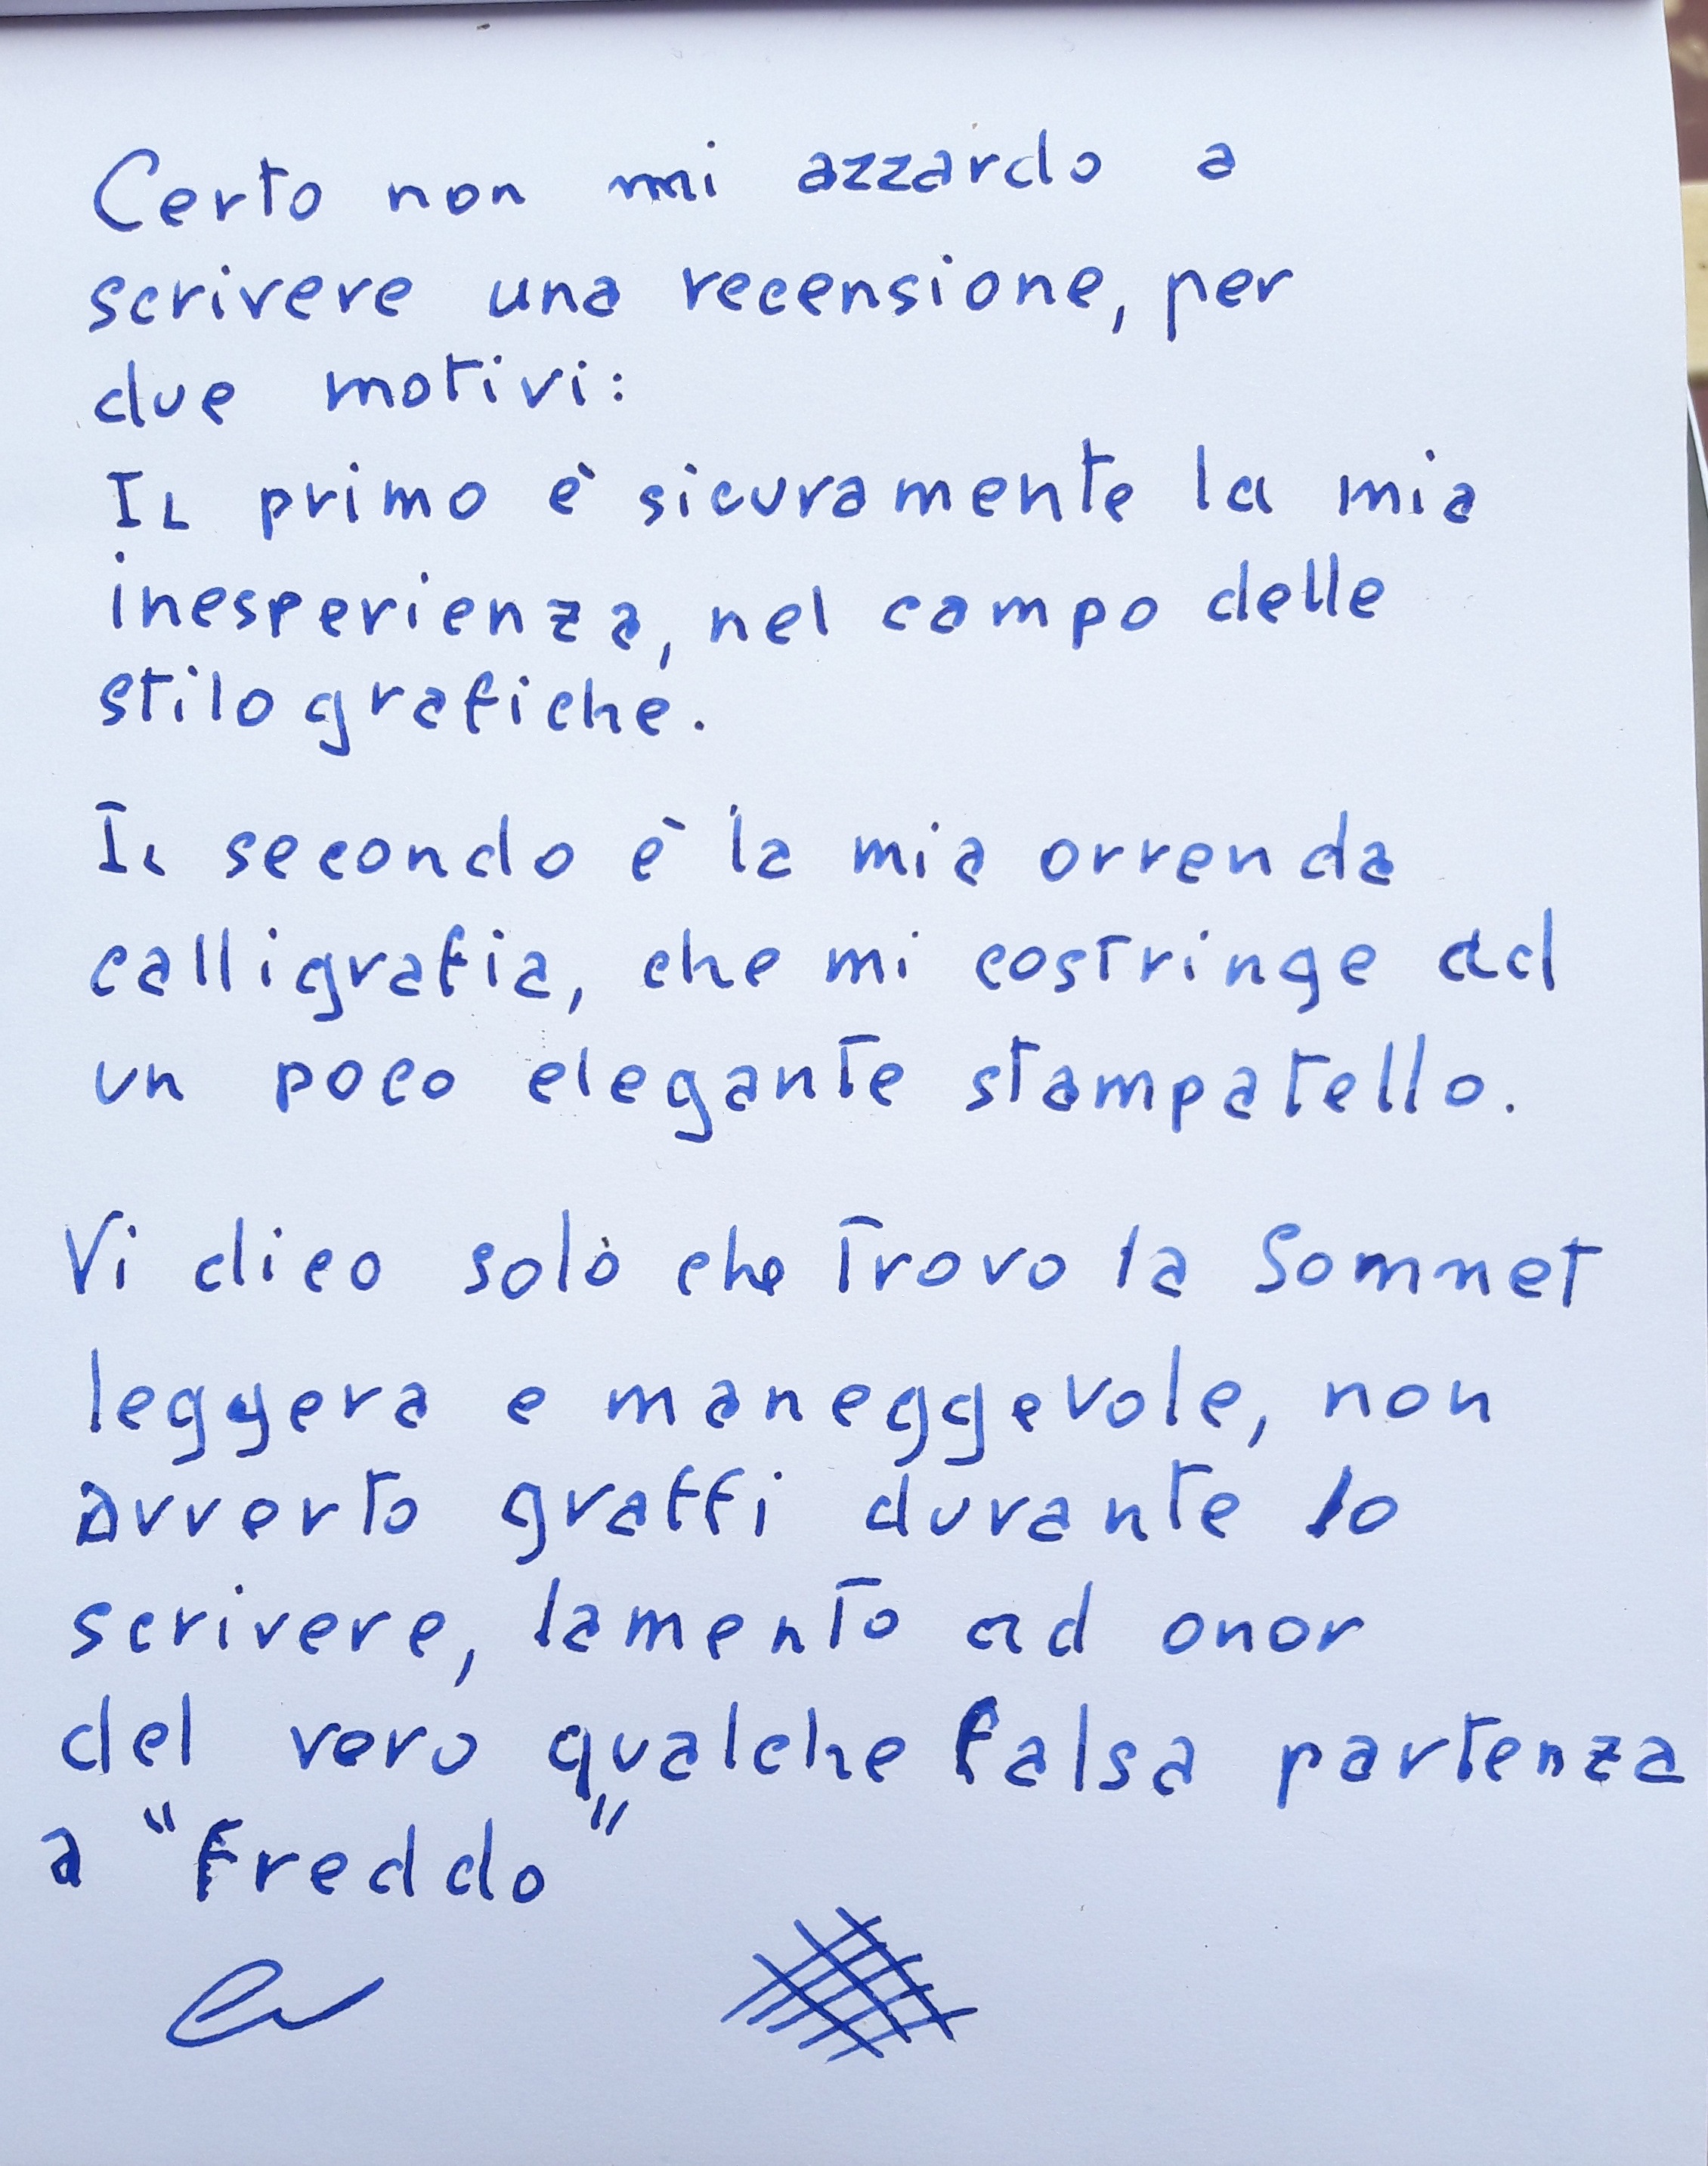 Certo non mi azzardo a
scrivere una recensione, per
due motivi:
Il primo è sicuramente la mia
inesperienza, nel campo delle
stilografiche.
Il secondo è la mia orrenda
calligrafia, che mi costringe ad
un poco elegante stampatello.
Vi dico solo che trovo la Sommet
leggera e maneggevole, non
avverto graffi durante lo
scrivere, lamento ad onor
del vero qualche falsa partenza
a "freddo"